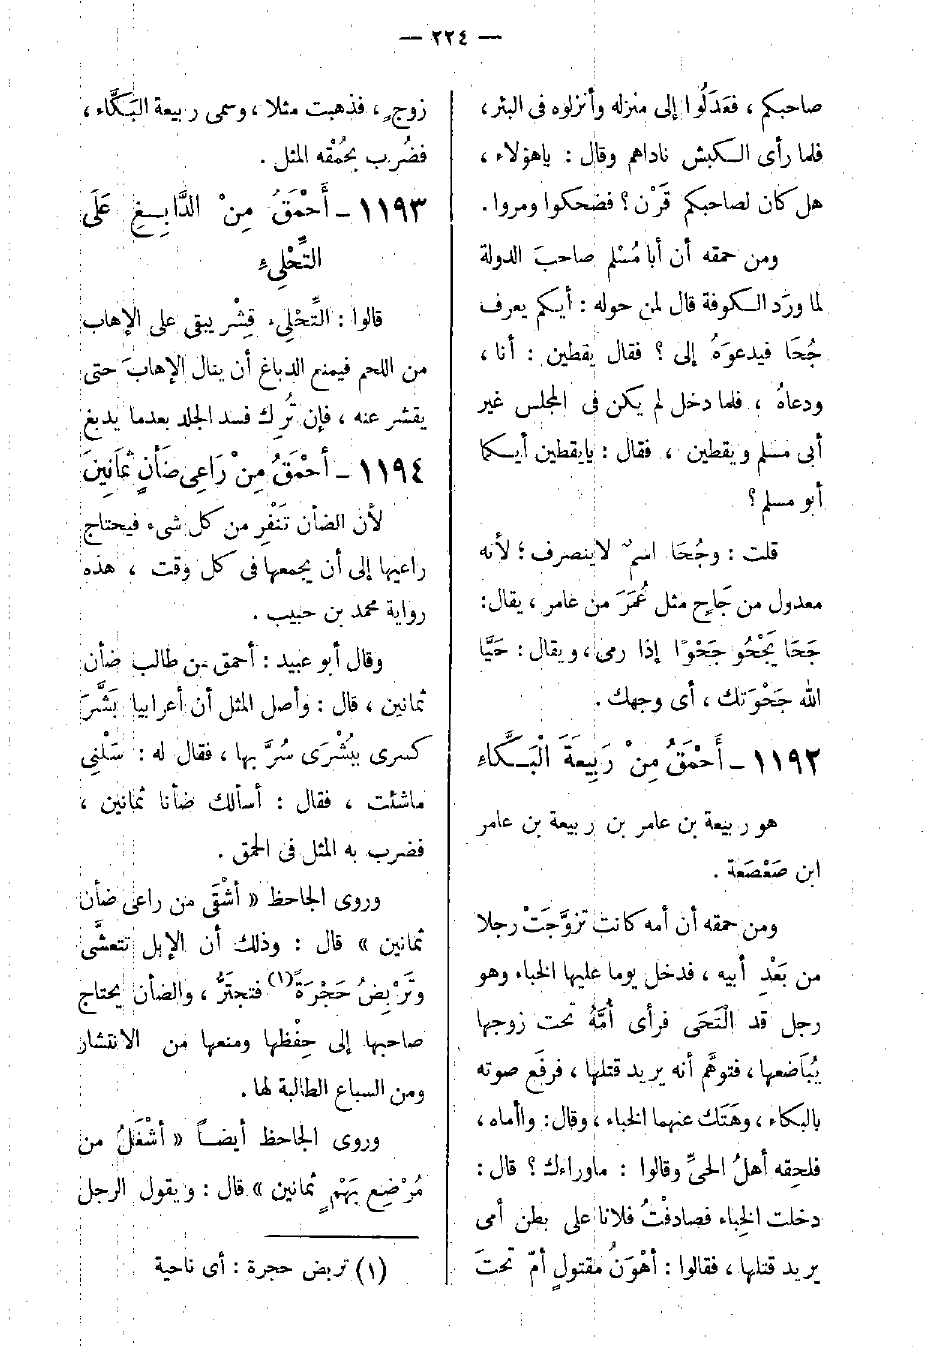 — ٢٢٤ —
صاحبكم ، فعَدَلُوا إلى منزله وأنزلوه فى البئر ،
فلما رأى الـكبش ناداهم وقال : ياهؤلاء ،
هل كان لصاحبكم قَرْن ؟ فضحكوا ومروا .
ومن حمقه أن أبا مُسْلم صاحبَ الدولة
لما ورَد الـكوفة قال لمن حوله : أيكم يعرف
جُحَا فيدعوَهُ إلى ؟ فقال يقطين : أنا ،
ودعاهُ ، فلما دخل لم يكن فى المجلس غير
أبى مسلم ويقطين ، فقال : يايقطين أيـكما
أبو مسلم ؟
قلت : وجُحَا اسم لاينصرف ؛ لأنه
معدول من جَاحٍ مثل عُمَرَ من عامر ، يقال :
جَحَا يَجْحُو جَحْوًا إذا رمى ، ويقال : حَيَّا
الله جَحْوَتك ، أى وجهك .
١١٩٢ ـ أَحْمَقُ مِنْ رَبِيعَةَ الْبَـكَّاءِ
هو ربيعة بن عامر بن ربيعة بن عامر
ابن صَعْصَعة .
ومن حمقه أن أمه كانت تزوَّجَتْ رجلا
من بَعْدِ أبيه ، فدخل يوما عليها الخباء وهو
رجل قد الْتَحَى فرأى أُمَّهُ تحت زوجها
يُبَاضعها ، فتوهَّم أنه يريد قتلها ، فرفَع صوته
بالبكاء ، وهَتَك عنهما الخباء ، وقال : واأماه ،
فلحِقه أهلُ الحىِّ وقالوا : ماوراءك ؟ قال :
دخلت الخباء فصادفْتُ فلانا على بطن أمى
يريد قتلها ، فقالوا : أهْوَنُ مقتولٍ أمّ تحتَ
زوجٍ ، فذهبت مثلا ، وسمى ربيعة البَكَّاء ،
فضُرب بحُمْقه المثل .
١١٩٣ ـ أَحْمَقُ مِنْ الدَّابِـغِ عَلَى
التِّحْلِىءِ
قالوا : التِّحْلِىء قِشْر يبقى على الإهاب
من اللحم فيمنع الدباغ أن ينال الإهابَ حتى
يقشر عنه ، فإن تُرِك فسد الجلد بعدما يدبغ
١١٩٤ ـ أَحْمَقُ مِنْ رَاعِى ضَأْنٍ ثَمَانِينَ
لأن الضأن تَنْفِر من كل شىء فيحتاج
راعيها إلى أن يجمعها فى كل وقت ، هذه
رواية محمد بن حبيب .
وقال أبو عبيد : أحمق من طالب ضأن
ثمانين ، قال : وأصل المثل أن أعرابيا بَشَّرَ
كسرى ببُشْرَى سُرَّ بها ، فقال له : سَلْنِى
ماشئت ، فقال : أسألك ضأنا ثمانين ،
فضرب به المثل فى الحمق .
وروى الجاحظ « أشْقَى من راعى ضأن
ثمانين » قال : وذلك أن الإبل تتعشَّى
وتَرْبِضُ حَجْرَةً (١) فتجترُّ ، والضأن يحتاج
صاحبها إلى حِفْظها ومنعها من الانتشار
ومن السباع الطالبة لها .
وروى الجاحظ أيضـاً « أشْغَلُ من
مُرْضِع بَهْمٍ ثمانين » قال : ويقول الرجل
(١) تربض حجرة : أى ناحية